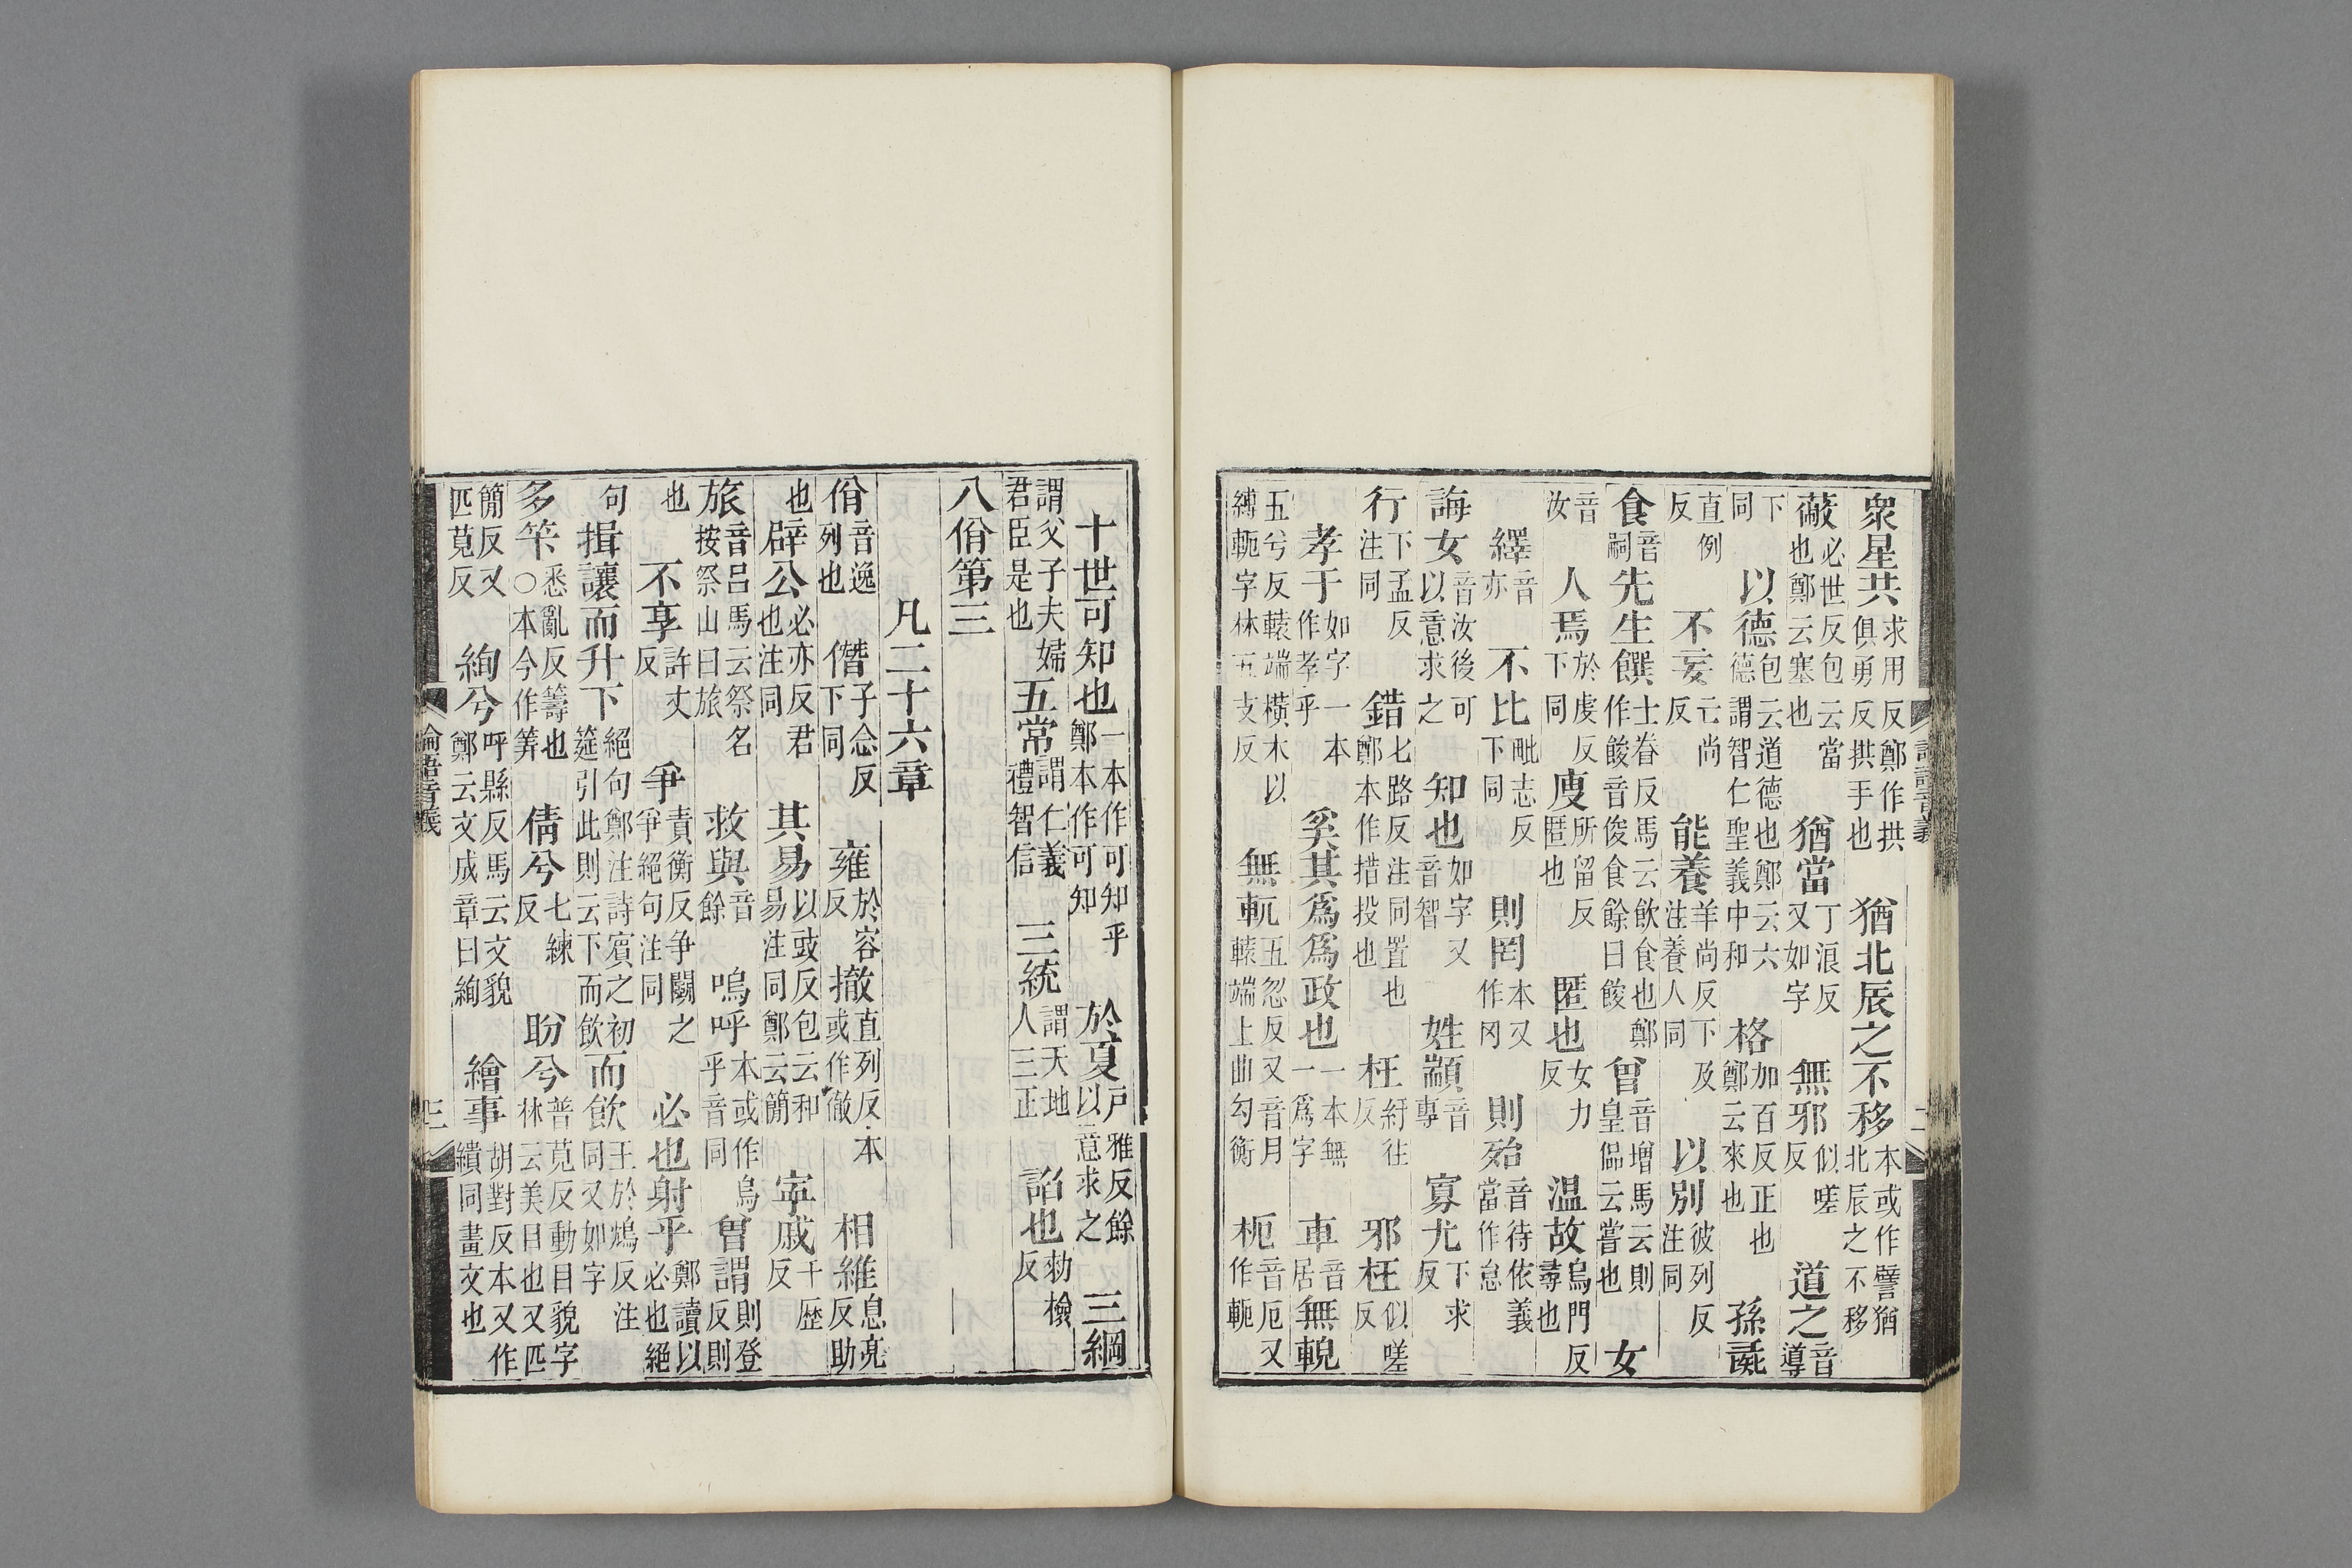 衆星共求用反鄭作拱俱勇反拱手也猶北辰之不移本或作譬猶北辰之不移
蔽必世反包云當也鄭云塞也猶當丁浪反又如字無邪似嗟反道之音導
下同以德包云道德也鄭云六德謂智仁聖義中和格加百反正也鄭云來也孫彘
直例反不妄亡尚反能養羊尚反下及注養人同以別彼列反注同
食音嗣先生饌士眷反馬云飲食也鄭作餕音俊食餘曰餕曾音增馬云則皇侃云嘗也女
音汝人焉於虔反下同廋所留反匿也匿也女力反温故烏門反尋也
繹音亦不比毗志反下同則罔本又作冈則殆音待依義當作怠
誨女音汝後可以意求之知也如字又音智姓顓音專寡尤下求反
行下孟反注同錯七路反注同置也鄭本作措投也枉紆往反邪枉似嗟反
孝于如字一本作孝乎奚其爲爲政也一本無一爲字車音居無輗
五兮反轅端橫木以縛軛字林五支反無軏五忽反又音月轅端上曲勾衡枙音厄又作軛
十世可知也一本作可知乎鄭本作可知於夏戶雅反餘以意求之三綱
謂父子夫婦君臣是也五常謂仁義禮智信三統謂天地人三正諂也勑檢反
八佾第三
凡二十六章
佾音逸列也僭子念反下同雍於容反撤直列反本或作徹相維息亮反助
也辟公必亦反君也注同其易以豉反包云和易注同鄭云簡寧戚千歷反
旅音呂馬云祭名按祭山曰旅救與音餘嗚呼本或作烏乎音同曾謂則登反則
也不享許丈反爭責衡反争鬭之爭絕句注同必也射乎鄭讀以必也絕
句揖讓而升下絕句鄭注詩賓之初筵引此則云下而飲而飲王於鴆反注同又如字
多筭悉亂反籌也○本今作筭倩兮七練反盼兮普莧反動目貌字林云美目也又匹
簡反又匹莧反絢兮呼縣反馬云文貌鄭云文成章曰絢繪事胡對反本又作繢同畫文也
論語音義
三